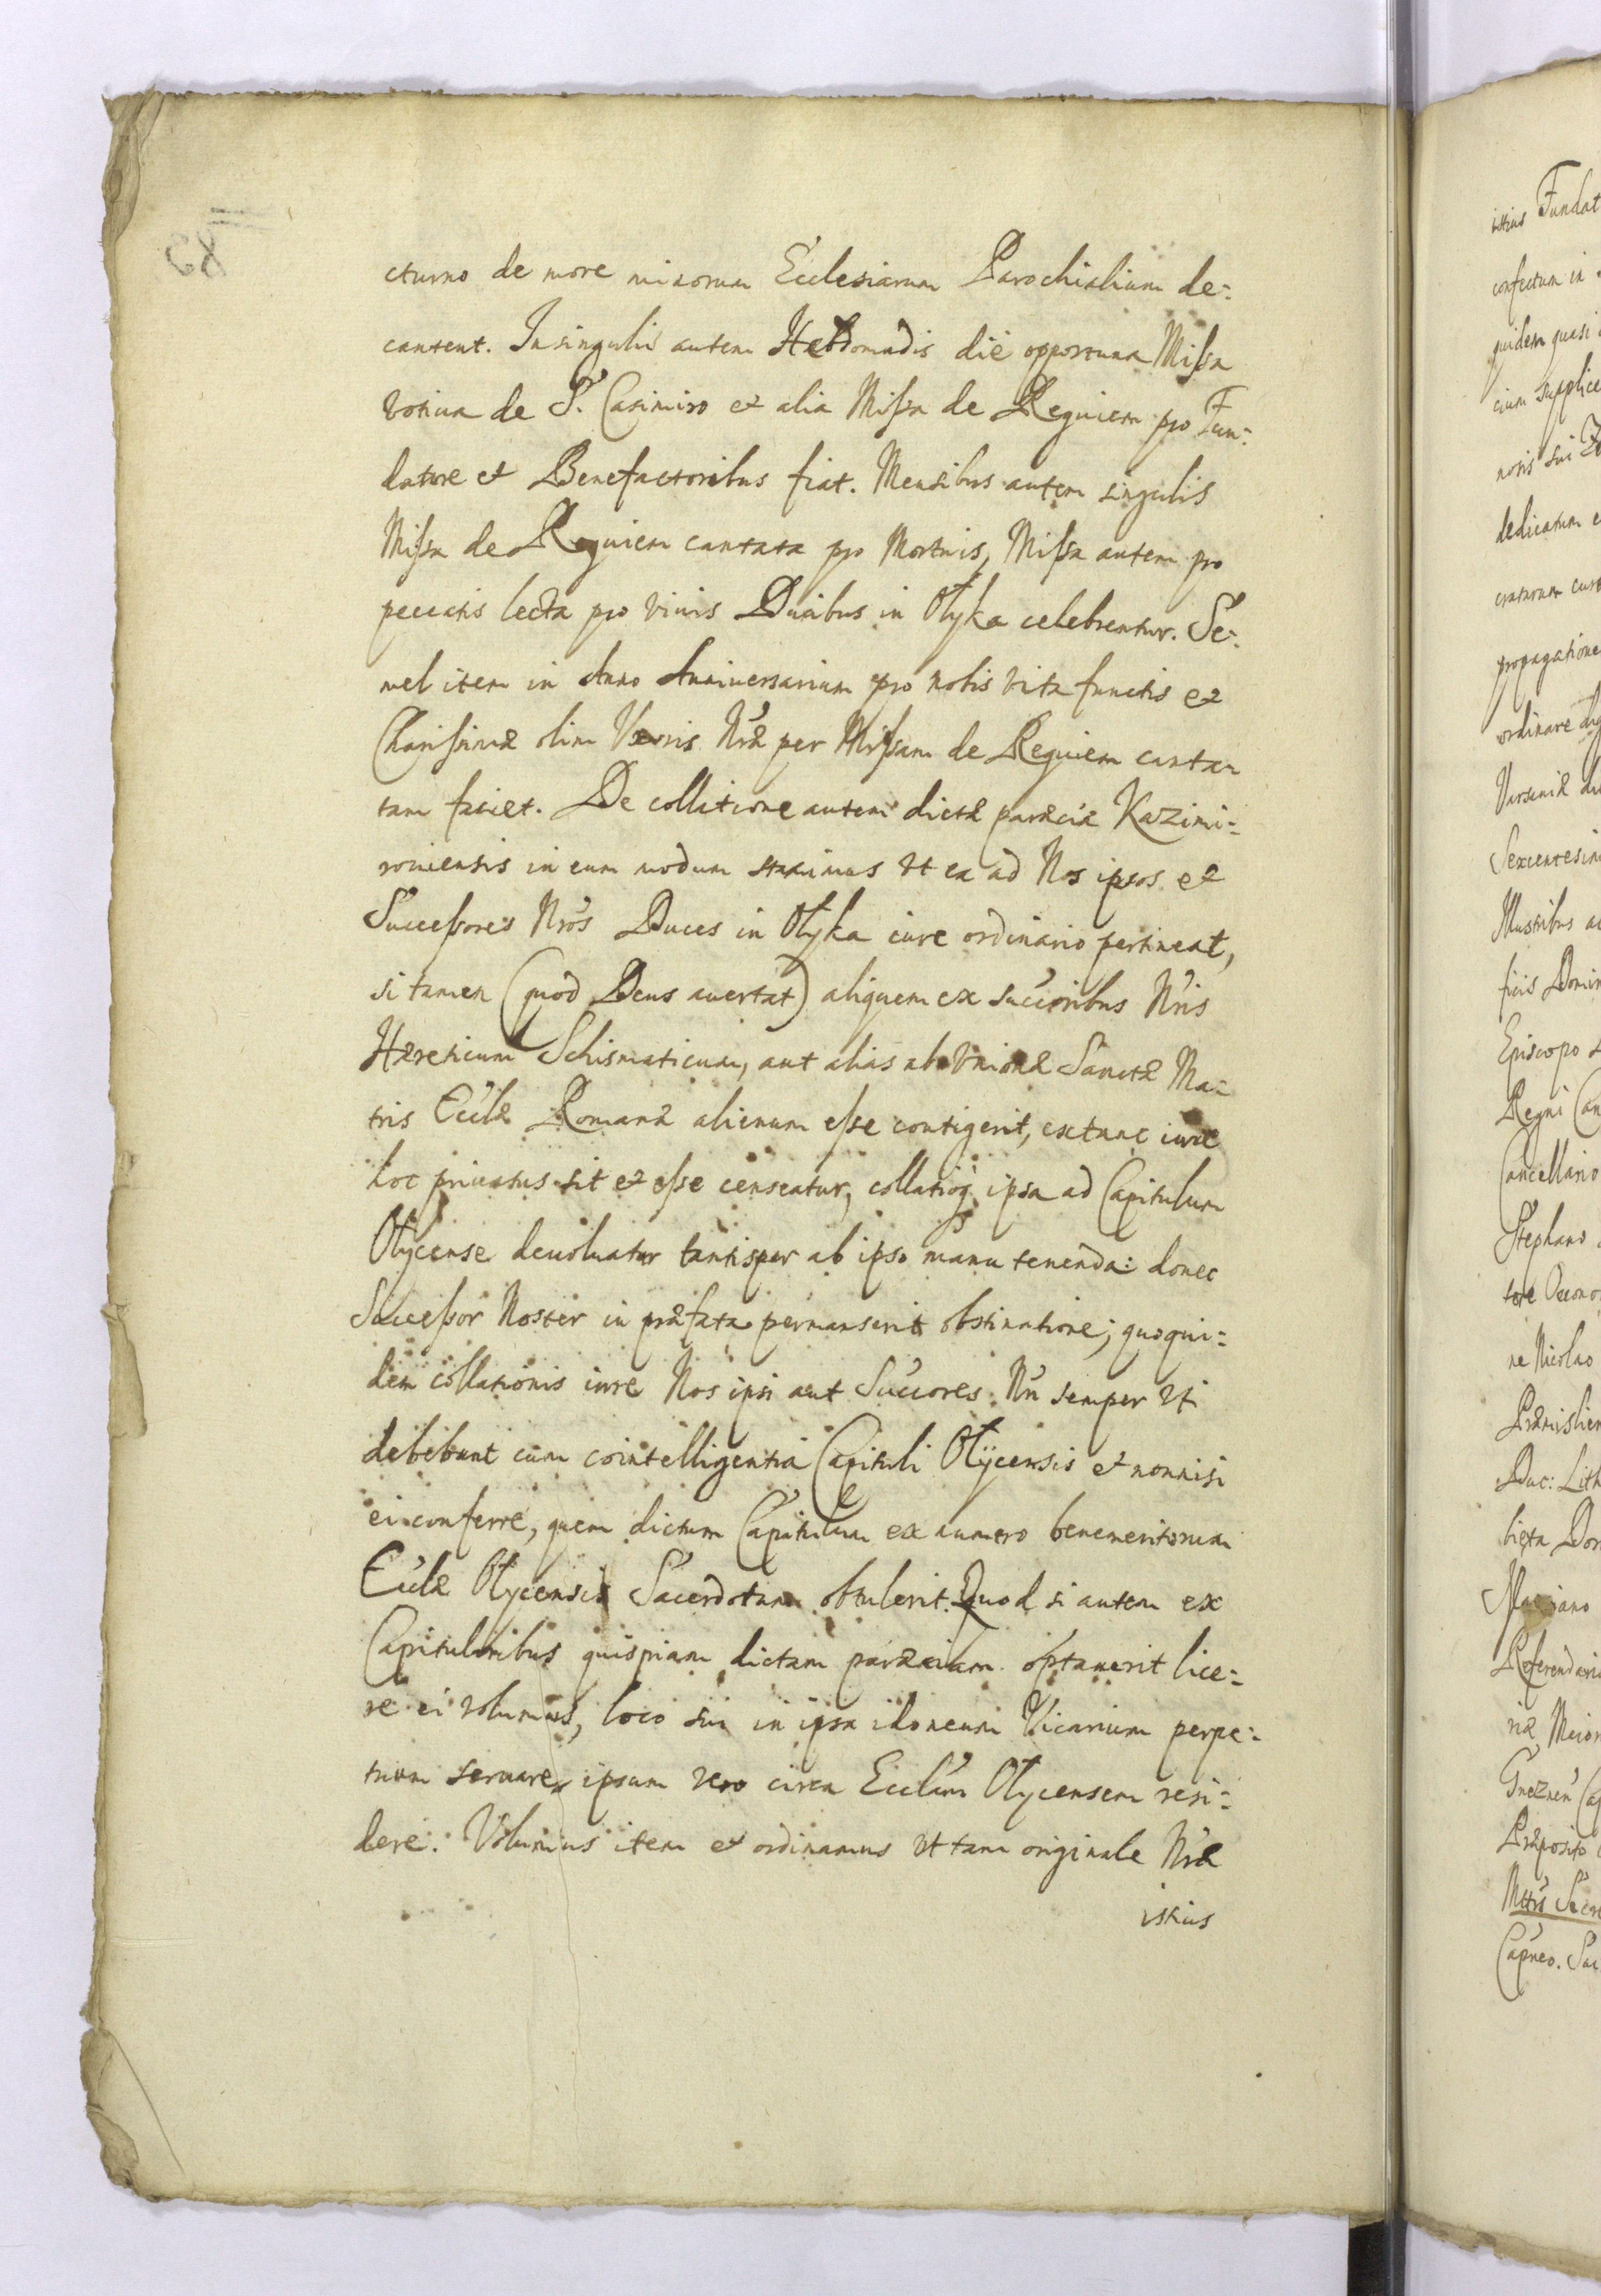 cturno de more minorum Ecclesiarum Parochialium de:
cantent. In singulis autem Hebdomadis die opportuna Missa
votiua de S. Casimiro et alia Missa de Requiem pro Fun:
datore et Benefactoribus fiat. Mensibus autem singulis
Missa de Requiem cantata pro Mortuis, Missa autem pro
peccatis lecta pro viuis Ducibus in Olyka celebrentur. Se:
mel item in Anno Anniuersarium pro nobis vita functis et
Charissimæ olim Vxoris Nræ per Missam de Requiem canta=
tam faciet. De collatione autem dictæ paræciæ Kazimi=
roviensis in eum modum statuimus vt ea ad Nos ipsos et
Successores Nros Duces in Olyka iure ordinario pertineat,
si tamen (quod Deus auertat) aliquem ex succoribus Nris
Hæreticum Schismaticum, aut alias ab Vnione Sanctæ Ma=
tris Ecclæ Romanæ alienum esse contigerit, extunc iure
hoc priuatus sit et esse censeatur, collatioq ipsa ad Capitulum
Olycense deuoluatur tantisper ab ipso manu tenenda: donec
Successor Noster in præfata permanserit obstinatione; quoqui=
dem collationis iure Nos ipsi aut Succores Nri semper vti
debebunt cum cointelligentia Capituli Olycensis et nonnisi
ei conferre, quem dictum Capitulum ex numero benemeritorum
Ecclæ Olycensis Sacerdotum obtulerit. Quod si autem ex
Capitularibus quispiam dictam paræciam optauerit lice=
re ei volumus, loco sui in ipsa idoneum Vicarium perpe=
tuum seruare, ipsum vero circa Ecclam Olycensem resi=
dere. Volumus item et ordinamus vt tam originale Nræ
istius
83
istius Fundat
confectum in
quidem quasi
cium supplice
noris sui
dedicatum e
propagatione
ordinare
Sexcentesim
Illustribus
ficis Domin
Episcopo
Regni Can
Cancellario
Stephano
tore Oecono
ne Nicolao
Præmislien
Duc: Lith
Referendari
riæ Maior
Gneznen Ca
Præposito